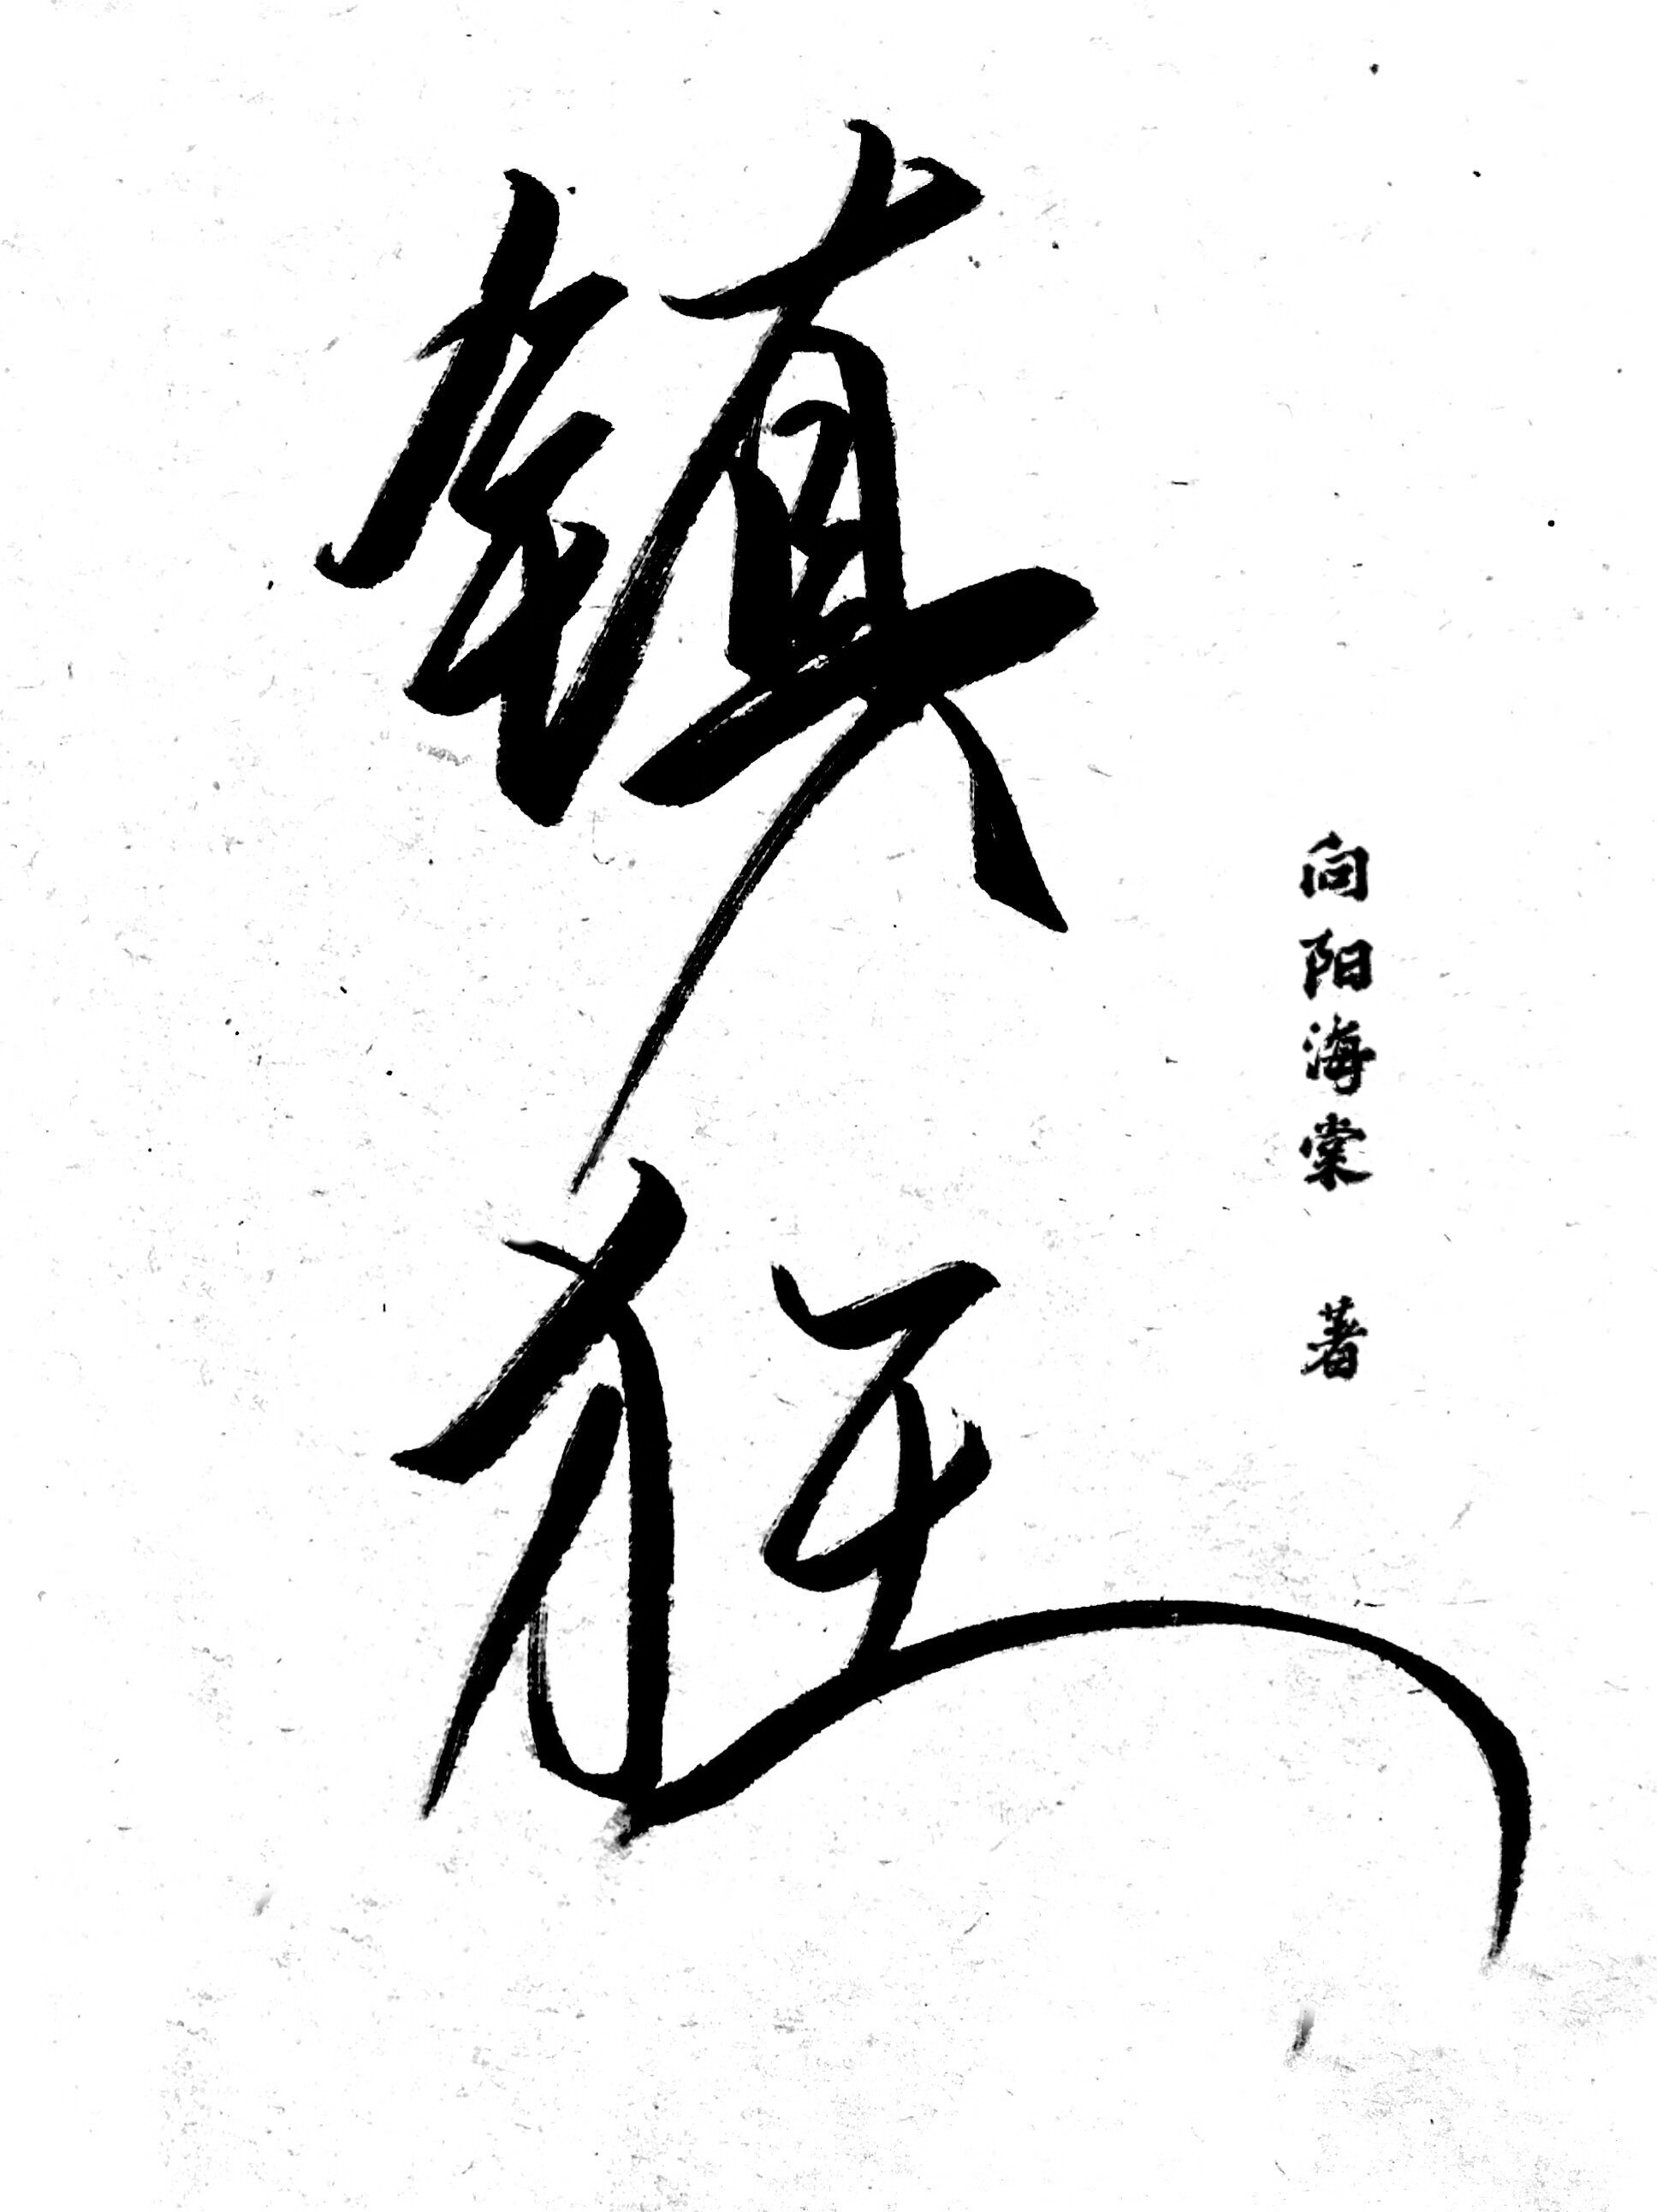 镇狂
向阳海棠 著